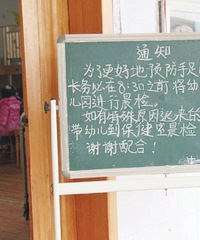 通知
为了更好地预防手足
长务必在8:30之前将幼
儿园进行晨检。
如有特殊原因迟来的
带幼儿到保健室晨检
谢谢配合!